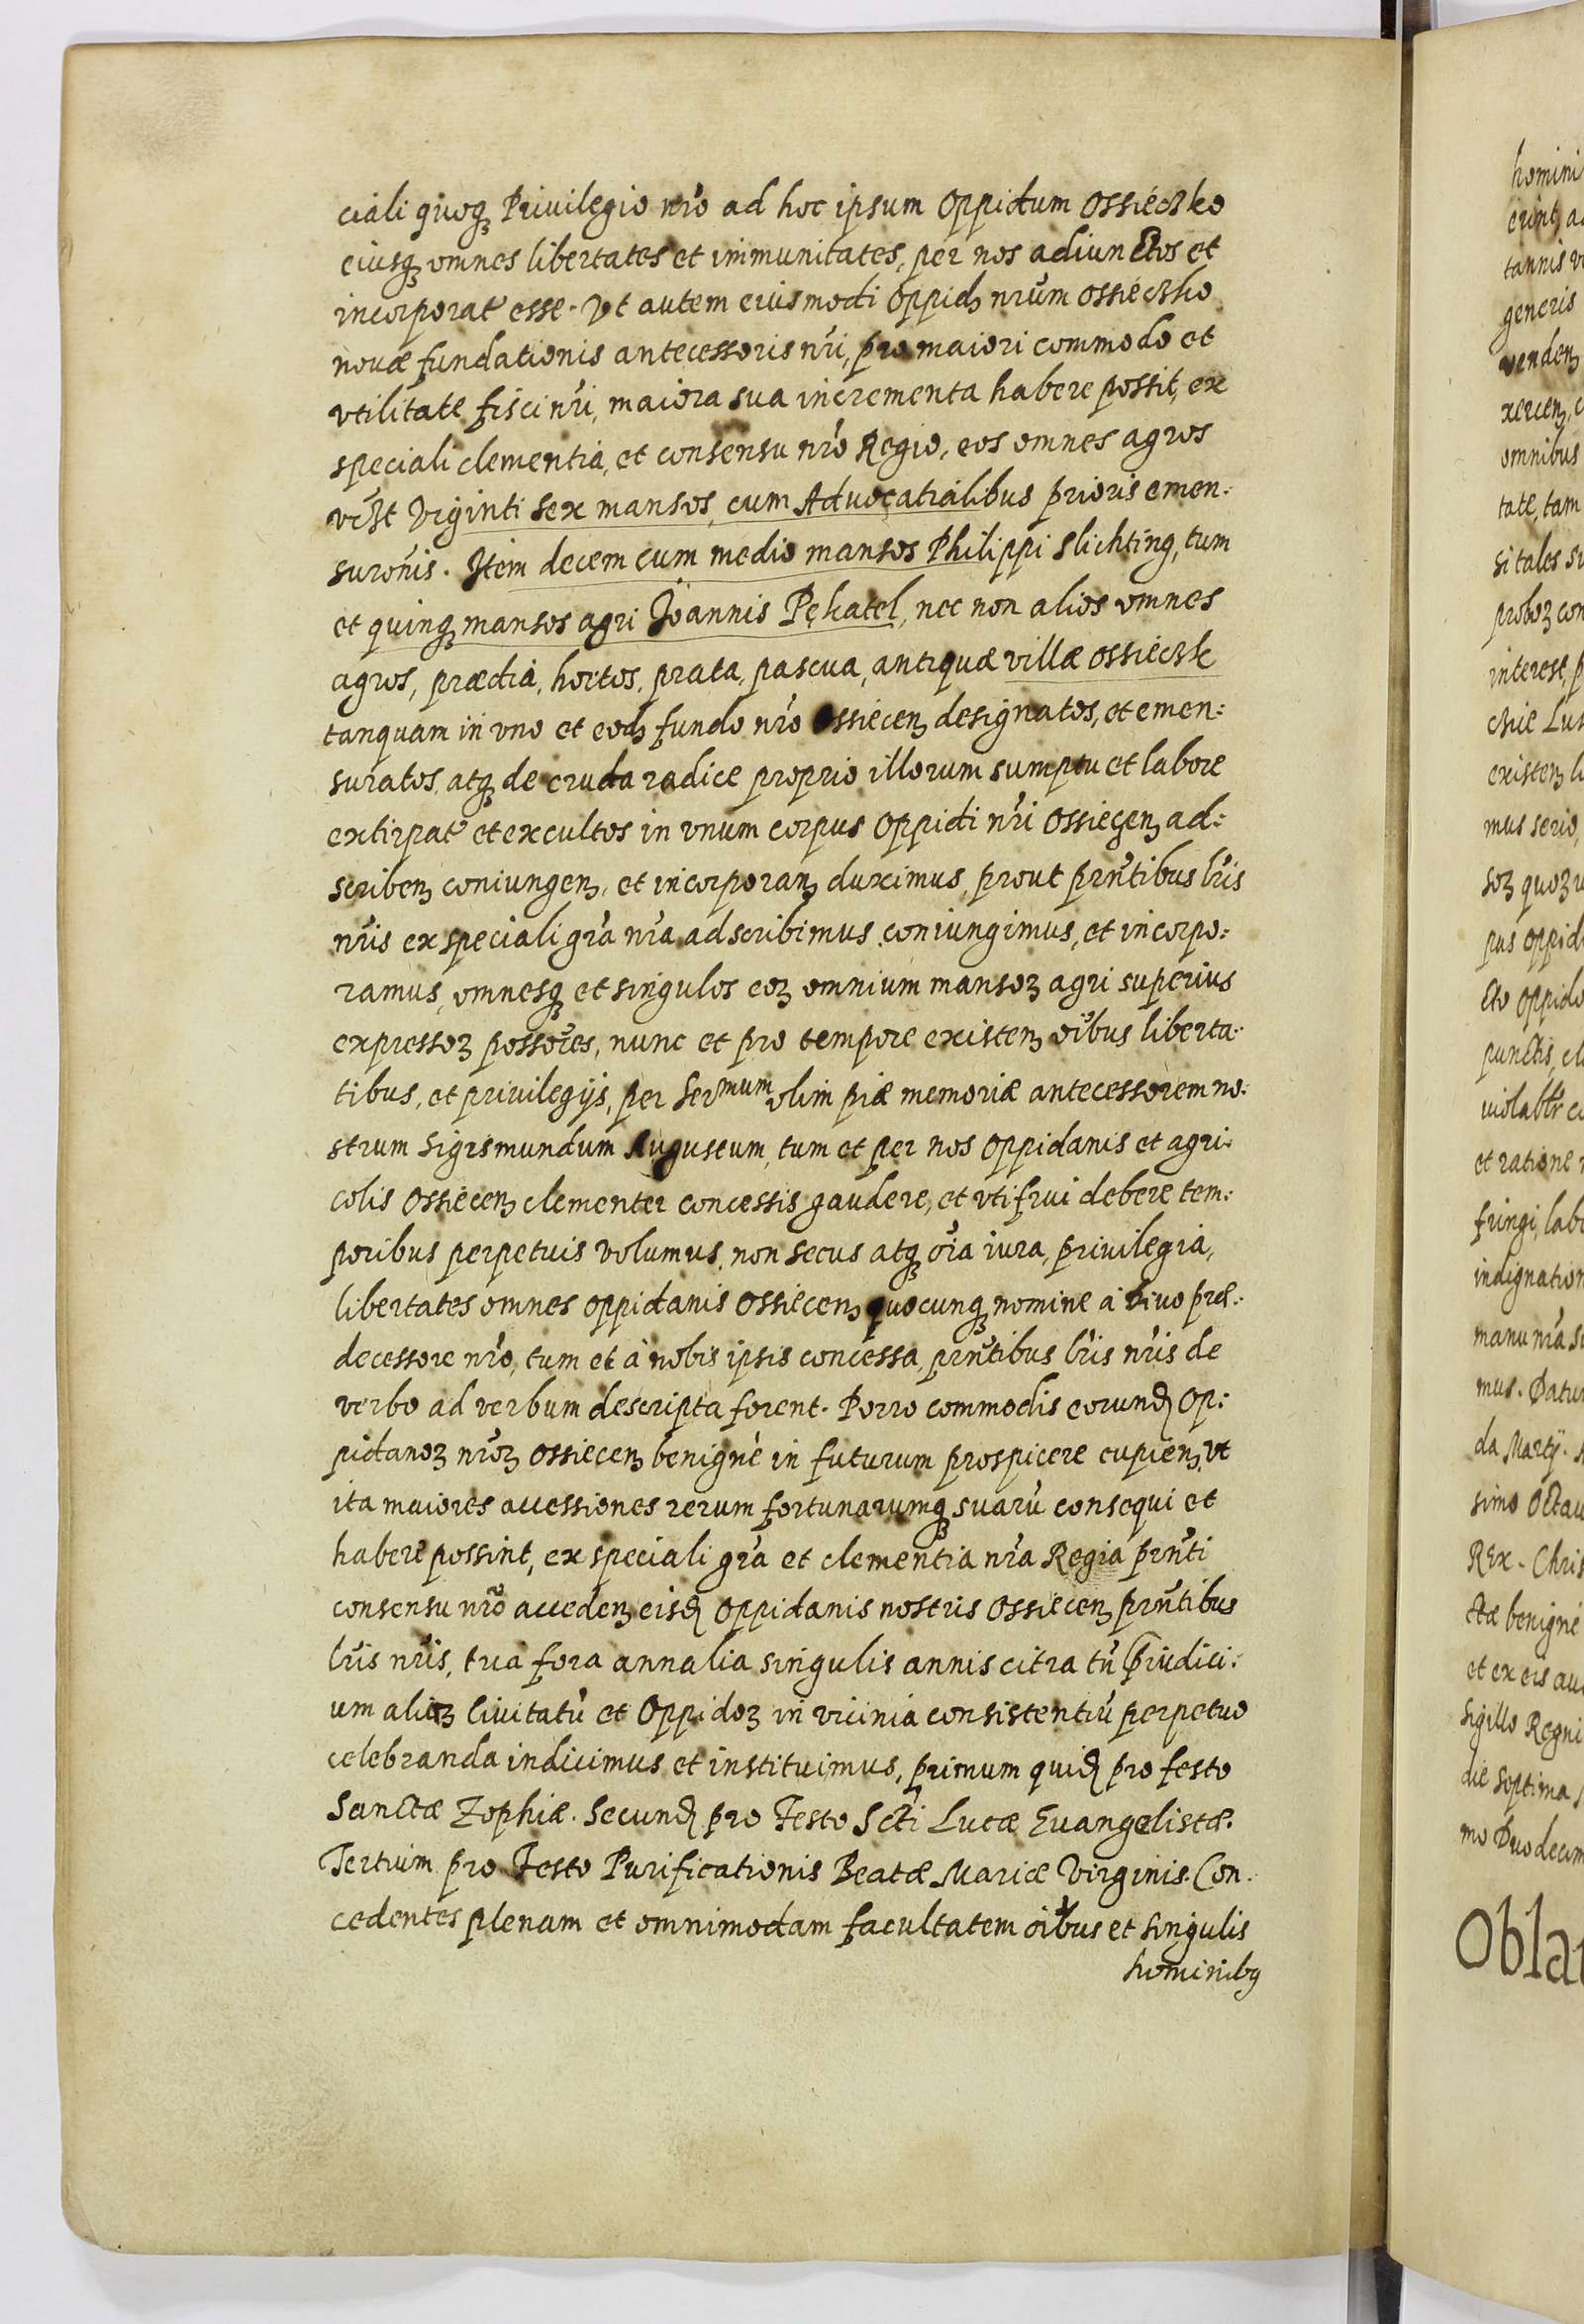 ciali quoqꝫ Priuilegio nr̃o ad hoc ipsum Oppidum Ossieczko
eiusqꝫ omnes libertates et immunitates, per nos adiunctos et
incorporat' esse. Vt autem eiusmodi Oppidꝫ nr̃um Ossieczko
nouæ fundationis antecessoris nr̃i, pro maiori commodo et
vtilitate fisci nr̃i, maiora sua incrementa habere possit, ex
speciali clementia, et consensu nr̃o Regio, eos omnes agros
Viginti sex mansos, cum Aduocatialibus prioris emen:
suronis. Item decem cum medio mansos Philippi Slichting, tum
et quinqꝫ mansos agri Joannis Pękatel, nec non alios omnes
agros, prædia, hortos, prata, pascua, antiquæ villæ Ossieczk
tanquam in vno et eodꝫ fundo nr̃o Ossiecenꝫ designatos, et emen:
suratos, atqꝫ de cruda radice proprio illorum sumptu et labore
extirpat' et excultos in vnum corpus Oppidi nr̃i Ossiecenꝫ ad:
scribenꝫ coniungenꝫ, et incorporanꝫ duximus, prout prñtibus lr̃is
nr̃is ex speciali gr̃a nr̃a adscribimus coniungimus, et incorpo:
ramus, omnesqꝫ et singulos eoꝝ omnium mansoꝝ agri superius
expressoꝝ possor̃es, nunc et pro tempore existenꝫ oĩbus liberta:
tibus, et priuilegijs, per Ser^mum olim piæ memoriæ antecessorem no:
strum Sigismundum Augustum, tum et per nos Oppidanis et agri:
colis Ossiecenꝫ clementer concessis gaudere, et vti frui debere tem:
poribus perpetuis volumus, non secus atqꝫ oĩa iura, priuilegia,
libertates omnes oppidanis Ossiecenꝫ quocunqꝫ nomine à Diuo præ:
decessore nr̃o, tum et à nobis ipsis concessa, prñtibus lr̃is nr̃is de
verbo ad verbum descripta forent. Porro commodis eorundꝫ Op:
pidanoꝝ nr̃oꝝ Ossiecenꝫ benignè in futurum prospicere cupienꝫ, vt
ita maiores accessiones rerum fortunarumqꝫ suarũ consequi et
habere possint, ex speciali gr̃a et clementia nr̃a Regia prñti
consensu nr̃o accedenꝫ eisdꝫ Oppidanis nostris Ossiecenꝫ prñtibus
lr̃is nr̃is, tria fora annalia singulis annis citra tñ p̃iudici:
um alioꝝ Ciuitatũ et Oppidoꝝ in vicinia consistentiũ perpetuo
celebranda indicimus et instituimus, primum quidꝫ pro festo
Sanctæ Zophiæ. Secundꝫ pro Festo Scti Lucæ Euangelistæ.
Tertium pro Festo Purificationis Beatæ Mariæ Virginis. Con:
cedentes plenam et omnimodam facultatem oĩbus et singulis
hominibꝰ
homini
erint, a
tannis
generis
vendenꝫ
xercenꝫ,
omnibus
tate, tam
si tales
proboꝝ con
interest,
existenꝫ
mus serio,
soꝝ quoꝝ
pus oppid
cto oppido
punctis,
et ratione
fringi,
indignation
manu nr̃a
mus. Datu
da Martij.
simo Octau
REx. Chris
ctæ benignè
et ex eis
Sigillo Regni
die Septima
mo Duodecim
Obla